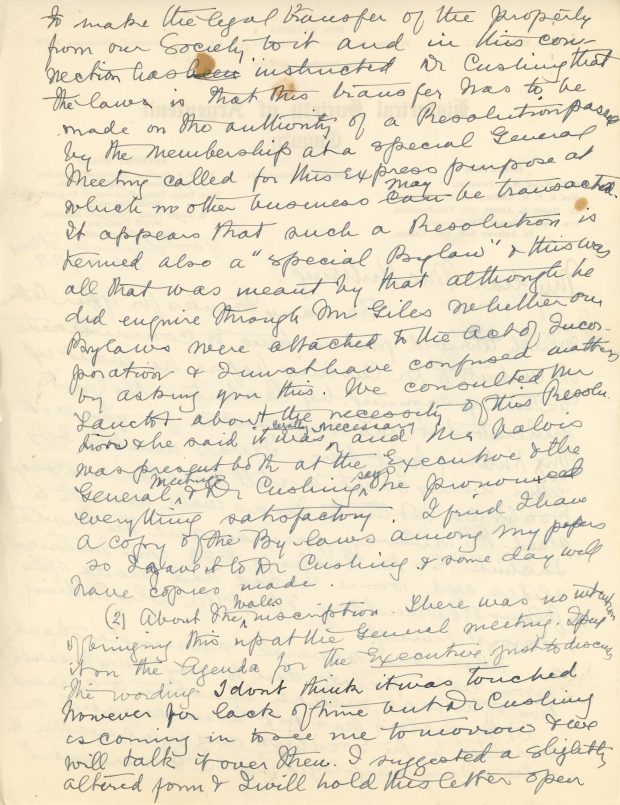 2
to make the legal transfer of the property
from our Society to it and in this con-
nection has been instructed Dr Cushing that
the law is that this transfer has to be
made on the authority of a Resolution passed
by the membership at a special General
Meeting called for this express purpose at
may
which no other business can be transacted.
It appears that such a Resolution is
termed also a "special Bylaw" & this was
all that was meant by that although he
did enquire through Mr Giles whether our
Bylaws were attached to the Act of Incor-
poration & I must have confused matters
by asking you this. We consulted Mr
Lanctot about the necessity of this Resolu-
legally
tion & he said it was necessary and Mr
was present both at the Executive & the
Meeting says
General & Dr Cushing he pronounced
everything satisfactory. I find I have
a copy of the By-laws among my papers
so I gave it to Dr Cushing & some day will
have copies made.
Wales
(2) About the inscription. There was no intention
of bringing this up at the General meeting. I put
it on the Agenda for the Executive just to discuss
the wording. I dont think it was touched
however for lack of time but Dr Cushing
is coming in to see me tomorrow & we
will talk it over then. I suggested a slightly
altered form & I will hold this letter open